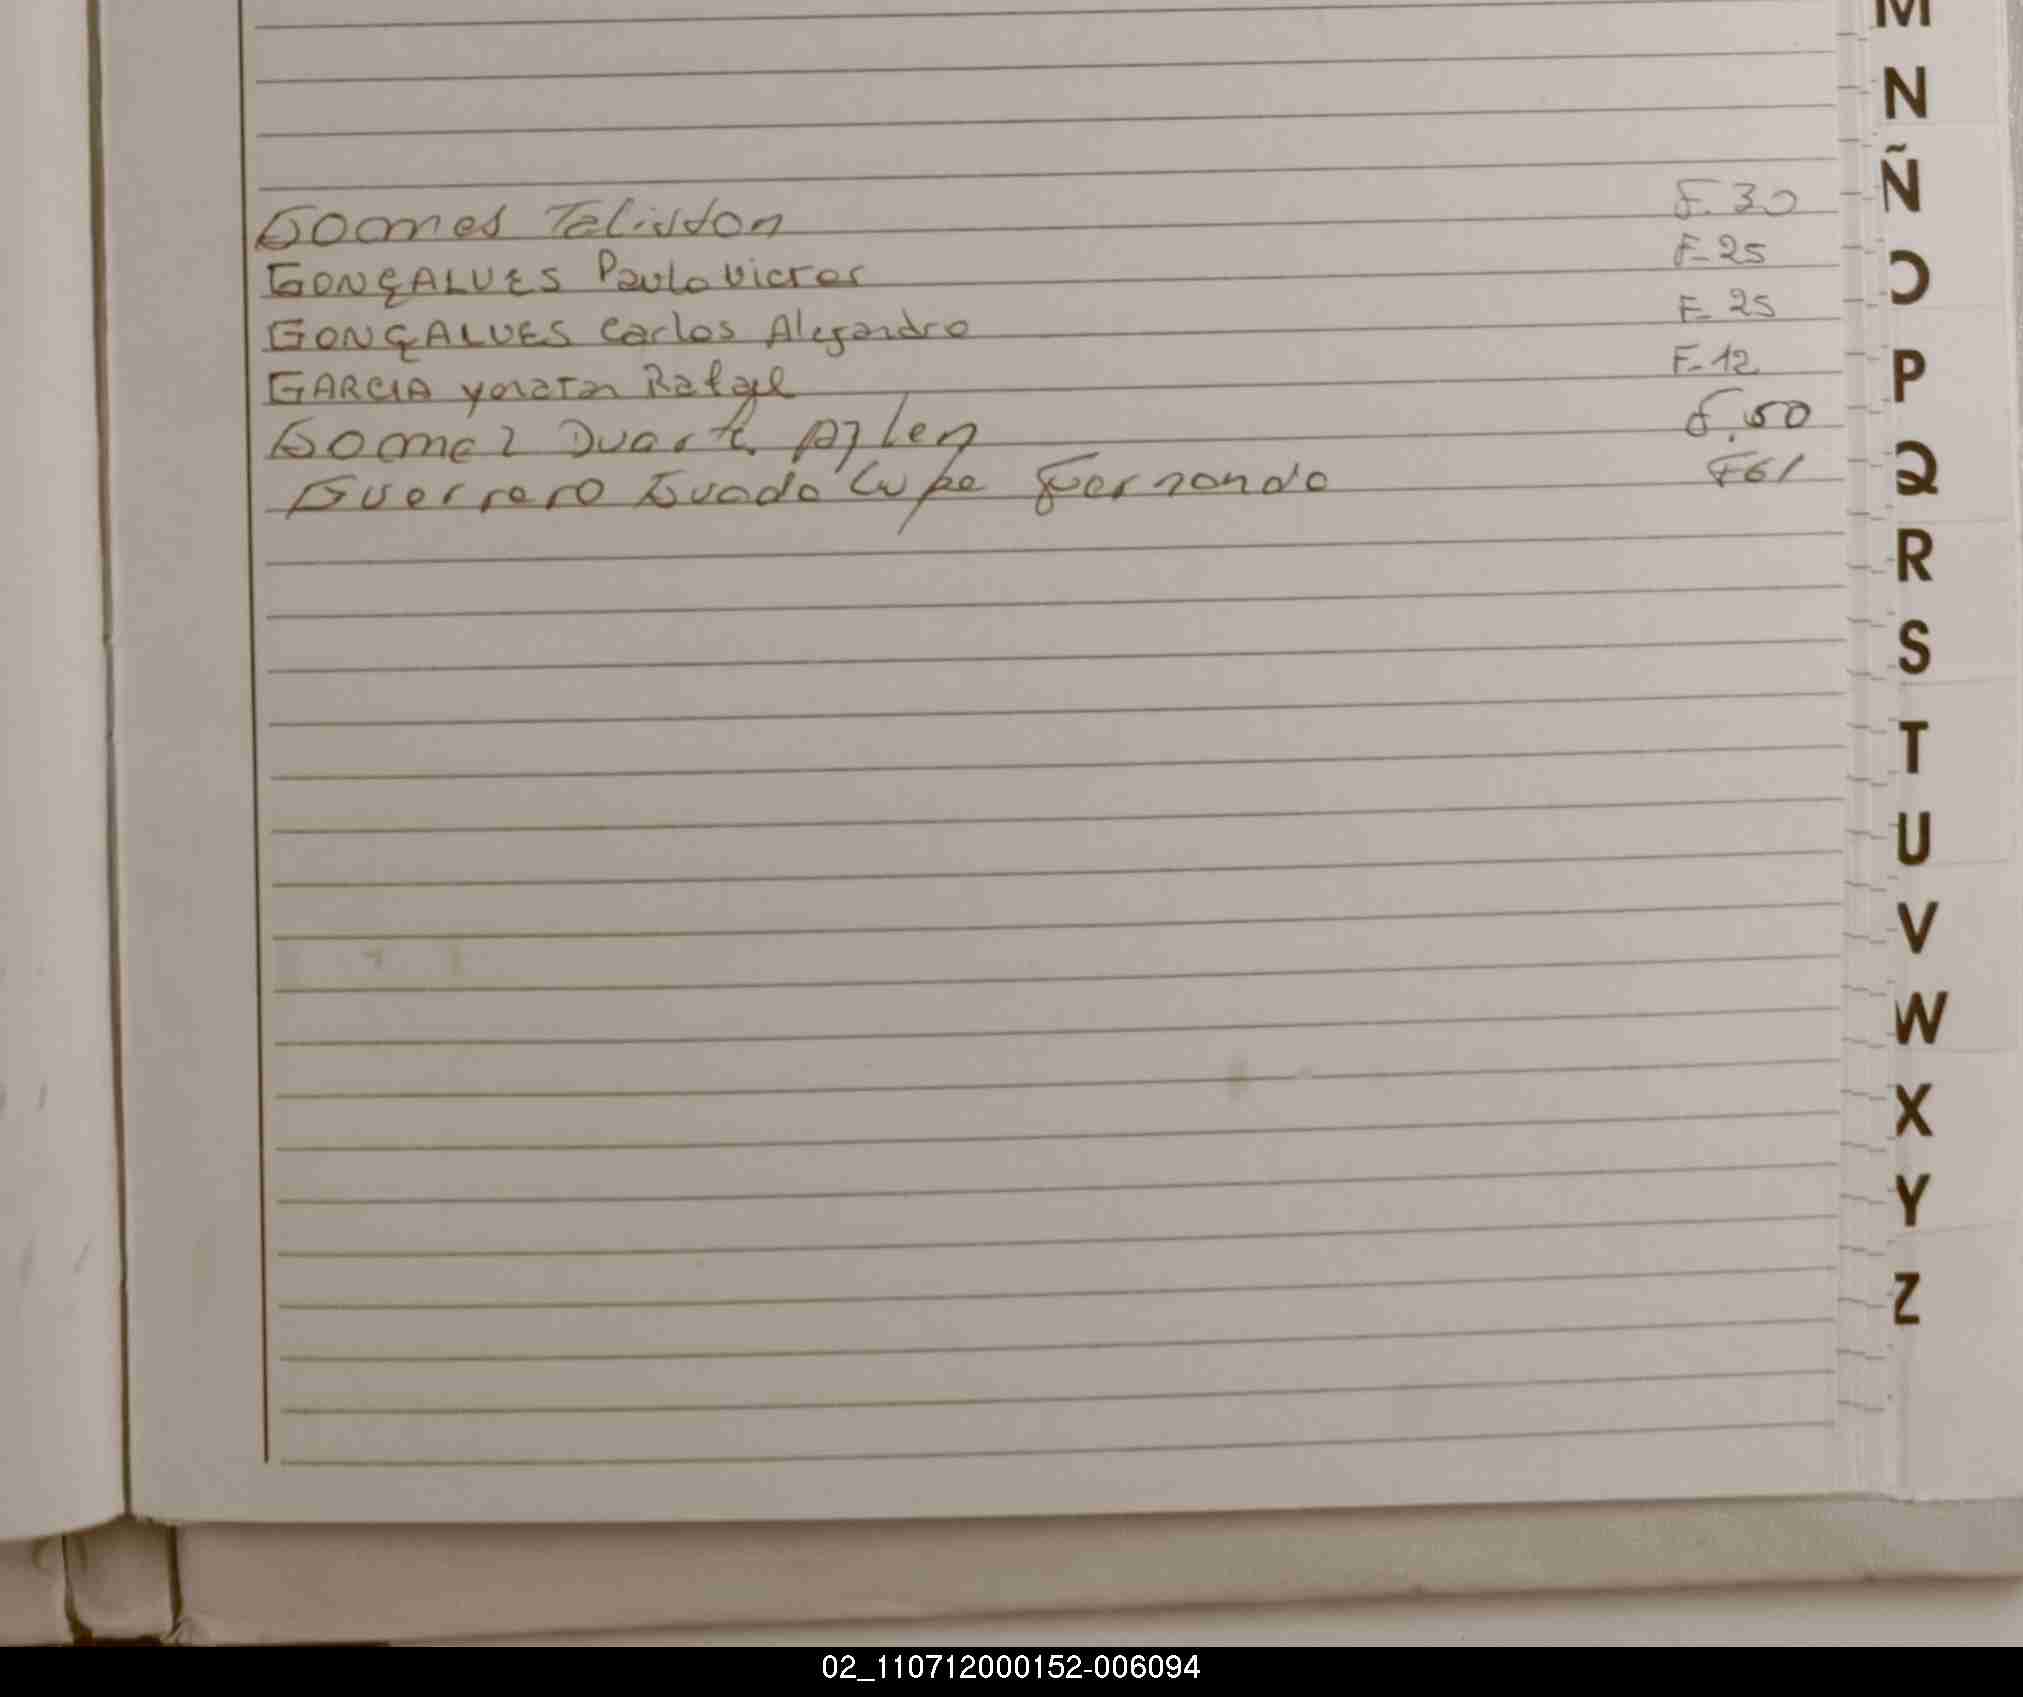 Gomes Talisson F. 30
GONÇALVES Paulo Victor F-25
GONÇALVES Carlos Alejandro F- 25
GARCIA yonatan Rafael F-12
Gomez Duarte Aylen F. 50
Guerrero Guadalupe Fernanda F61
M
N
Ñ
O
P
Q
R
S
T
U
V
W
X
Y
Z
02_110712000152-006094